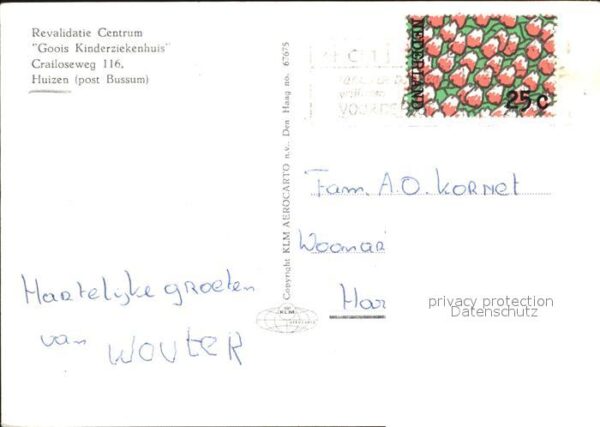 Revalidatie Centrum
"Goois Kinderziekenhuis"
Crailoseweg 116,
Huizen (post Bussum)
NEDERLAND
25 c
Copyright KLM AEROCARTO n.v., Den Haag no. 67675
Fam. A.O. KORNET
Woonar
Har
Hartelijke groeten
van WOUTER
KLM
AEROCARTO
privacy protection
Datenschutz